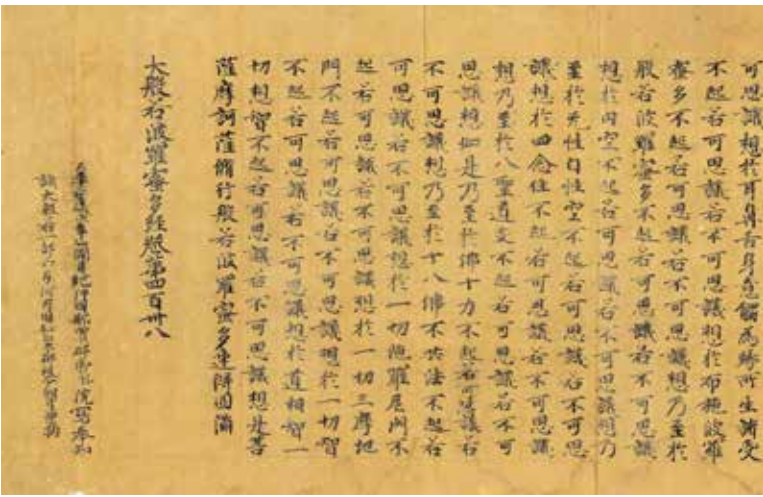 可思議想於耳鼻舌身意觸為緣所生諸受
不起若可思議若不可思議想於布施波羅
蜜多不起若可思議若不可思議想乃至於
般若波羅蜜多不起若可思議若不可思議
想於內空不起若可思議若不可思議想乃
至於无性自性空不起若可思議若不可思
議想於四念住不起若可思議若不可思議
想乃至於八聖道支不起若可思議若不可
思議想如是乃至於佛十力不起若可思議若
不可思議想乃至於十八佛不共法不起若
可思議若不可思議想於一切陁羅尼門不
起若可思議若不可思議想於一切三摩地
門不起若可思議若不可思議想於一切智
不起若可思議若不可思議想於道相智一
切想智不起若可思議若不可思議想是菩
薩摩訶薩脩行般若波羅蜜多速得圓滿
大般若波羅蜜多經卷第四百卅八